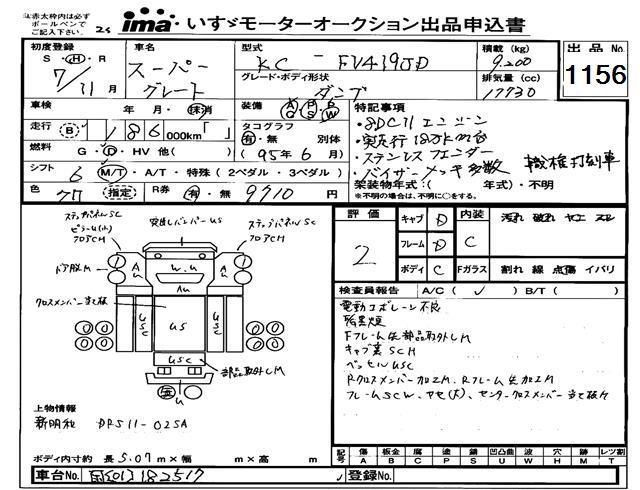 ※赤太枠内は必ず
ボールペンで
ご記入下さい。
ima いすゞモーターオークション出品申込書
出品No
1156
初度登録
S・H・R
7/11月
車名
スーパー
グレート
型式
KC-FV419JD
グレード・ボディ形状
ダンプ
積載 (kg)
9.200
排気量 (cc)
17730
車検
年・月・抹消
装備 A/C P/S P/W
走行 B 186 000km「 」
タコグラフ
有・無 別体
(95年6月)
燃料 G・D・HV 他( )
シフト 6 M/T・A/T・特殊(2ペダル・3ペダル)
色 クロ 指定
R券 有・無 9710円
特記事項
・8DC11エンジン
・実走行18万km台
・ステンレスフェンダー
・バイザーメッキ多数
職権打刻車
架装物年式・( 年式)・不明
※架装物年式の場合は、不明に○をする。
評価
2
キャブ D
フレーム D
ボディ C
内装 C
汚れ 破れ ヤエ スレ
Fガラス 割れ 線 点傷 イバリ
検査員報告 A/C ( ✓ ) B/T ( )
黒煙
Fフレーム先部品取外しM
キャブ裏SCH
ベッセルUSC
Rクロスメンバー加工M、Rフレーム先加工M
フレームSCW、ヤセ(大)、センタークロスメンバー当て板有
ステップパネルSC
ピラーU(小)
フロアCH
突出しバンパーUS
ステップパネルSC
フロアCH
ドア脱M
クロスメンバー当て板
A U
W.U
A U
AU
USC
US
USC
USC
部品取外しM
U
上物情報
新明和 DR511-02SA
ボディ内寸約 長5.07m×幅 m×高 m
記号
傷 A
板金 B
腐 C
塗 P
錆 S
凹凸曲 U
波 W
穴 H
跡 M
レツ割 T
車台No. 国[01]182517
登録No.